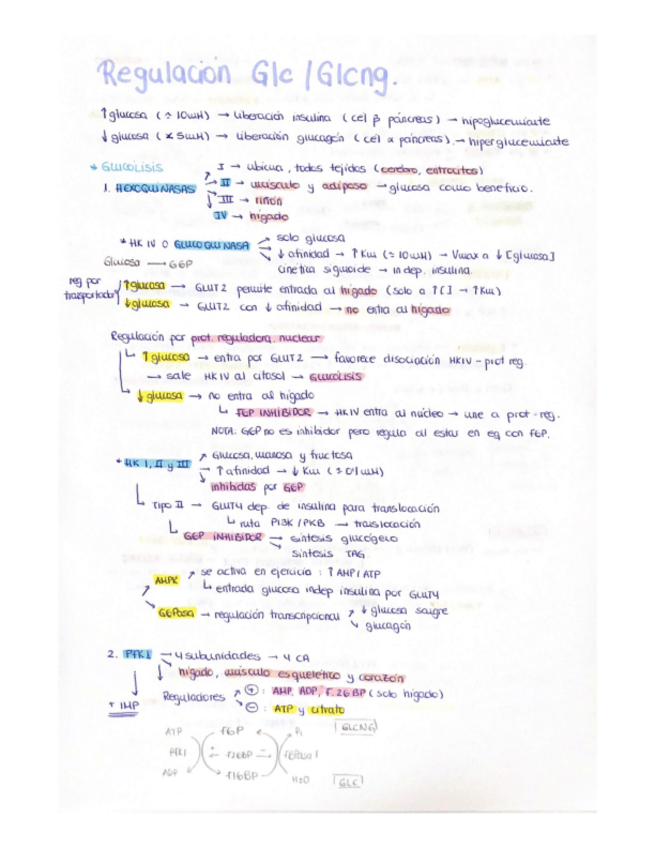 Regulación Glc / Glcng.
↑ glucosa (≈ 10mM) → liberación insulina (cel β páncreas) → hipoglucemiante
↓ glucosa (< 5mM) → liberación glucagón (cel α páncreas) → hiperglucemiante
* GLUCOLISIS
I → ubicua, todos tejidos (cerebro, eritrocitos)
1. HEXOQUINASAS → II → músculo y adiposo → glucosa como beneficio.
III → riñón
IV → hígado
* HK IV O GLUCOQUINASA → solo glucosa
↓ afinidad → ↑ Km (≈ 10mM) → Vmax a ↓ [glucosa]
Glucosa → G6P
cinética sigmoide → indep. insulina.
reg por transportador
↑ glucosa → GLUT2 permite entrada al hígado (solo a ↑[] → ↑Km)
↓ glucosa → GLUT2 con ↓ afinidad → no entra al hígado
Regulación por prot. reguladora. nuclear
↑ glucosa → entra por GLUT2 → favorece disociación HKIV - prot reg.
→ sale HK IV al citosol → GLUCOLISIS
↓ glucosa → no entra al hígado
↳ F6P INHIBIDOR → HK IV entra al núcleo → une a prot-reg.
NOTA: G6P no es inhibidor pero regula al estar en eq con F6P.
* HK I, II y III → Glucosa, manosa y fructosa
→ ↑ afinidad → ↓ Km (≈ 0'1 mM)
inhibidas por G6P
↳ Tipo II → GLUT4 dep. de insulina para translocación
↳ ruta PI3K / PKB → translocación
↳ G6P INHIBIDOR → síntesis glucógeno
síntesis TAG
AMPK → se activa en ejercicio : ↑ AMP/ATP
↳ entrada glucosa indep insulina por GLUT4
G6Pasa → regulación transcripcional → ↓ glucosa sangre
glucagón
2. PFK1 → 4 subunidades → 4 CA
↳ hígado, músculo esquelético y corazón
+ IMP
Reguladores → ⊕ : AMP, ADP, F.26BP (solo hígado)
⊖ : ATP y citrato
ATP F6P Pi GLCNG
PFK1 + F26BP - FBPasa 1
ADP F16BP H2O GLC